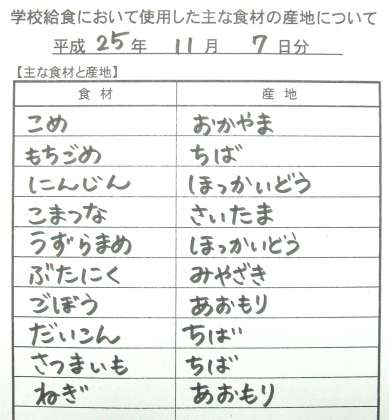 学校給食において使用した主な食材の産地について
平成 25 年 11 月 7 日分
【主な食材と産地】
食材 産地
こめ おかやま
もちごめ ちば
にんじん ほっかいどう
こまつな さいたま
うずらまめ ほっかいどう
ぶたにく みやざき
ごぼう あおもり
だいこん ちば
さつまいも ちば
ねぎ あおもり